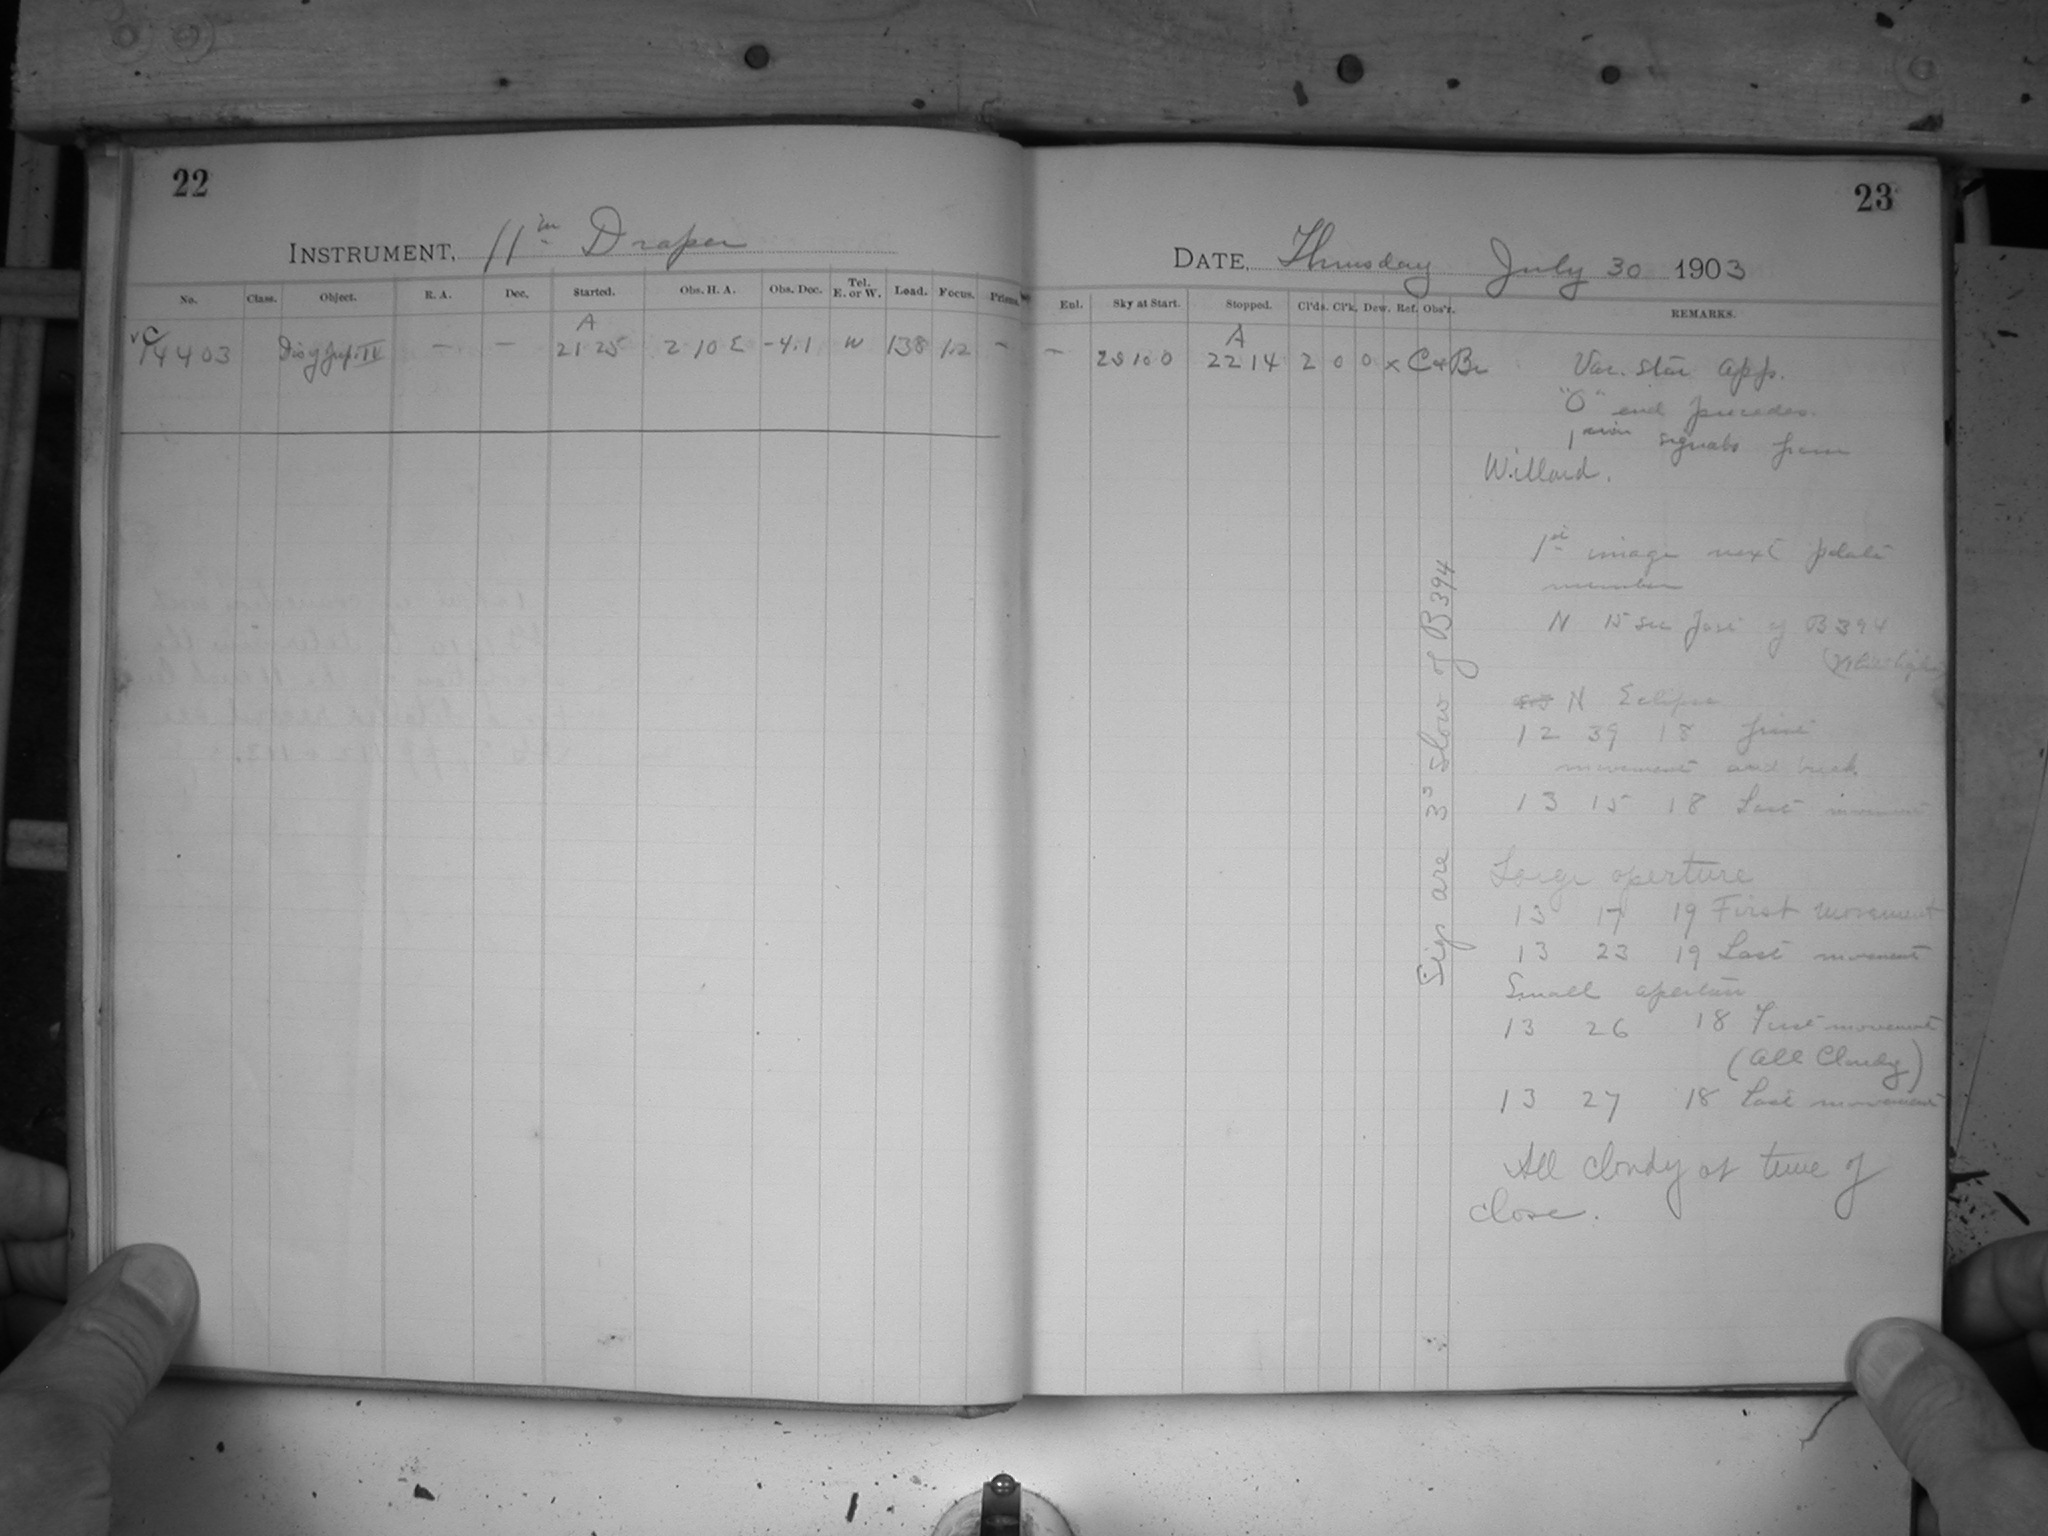 22
INSTRUMENT, 11 in Draper
No. Class. Object. R. A. Dec. Started. Obs. H. A. Obs. Dec. Tel. E. or W. Load. Focus. Prisms.
C 14403 Dis of Jup. IV — — A 21 25 2 10 E -4.1 W 138 1.2 —
23
DATE, Thursday July 30 1903
Enl. Sky at Start. Stopped. Cl'ds. Cl'k. Dew. Ref. Obs'r. REMARKS.
— A 22 14 2 0 0 x C + Br Var. star app.
"O" end precedes.
1 min signals from
Willard.
1st image next plate
number
N 15 sec fast of B 394
N Eclipse
12 39 18 first
movement and back
13 15 18 Last movement
Large aperture
13 17 19 First movement
13 23 19 Last movement
Small aperture
13 26 18 First movement
(All Cloudy)
13 27 18 Last movement
All cloudy at time of
close.
Sigs are 3s slow of B394